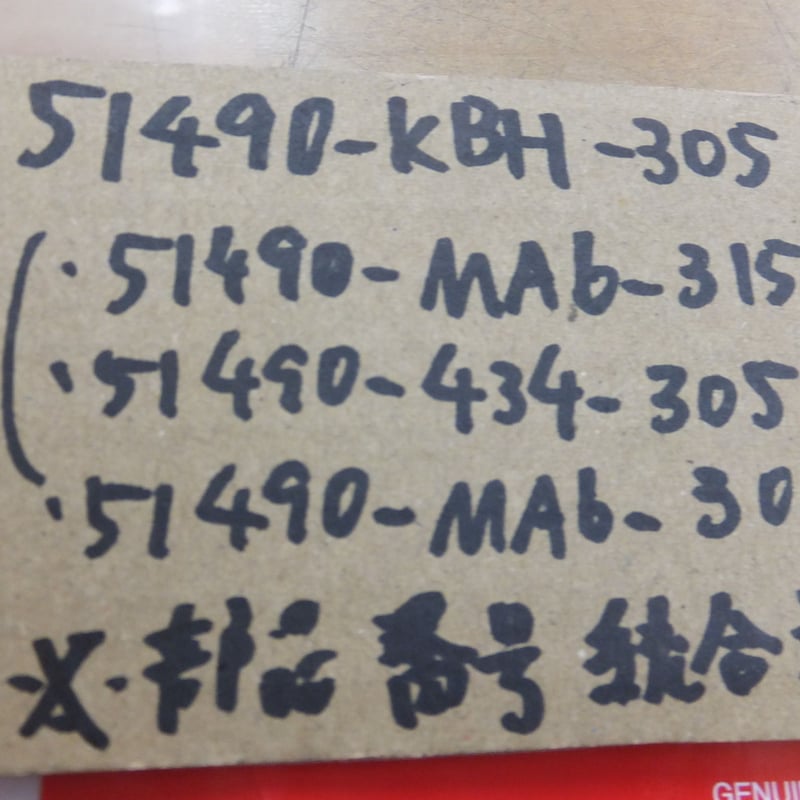 51490-KBH-305
(・51490-MA6-315
・51490-434-305
・51490-MA6-30
※部品番号統合
GENUI